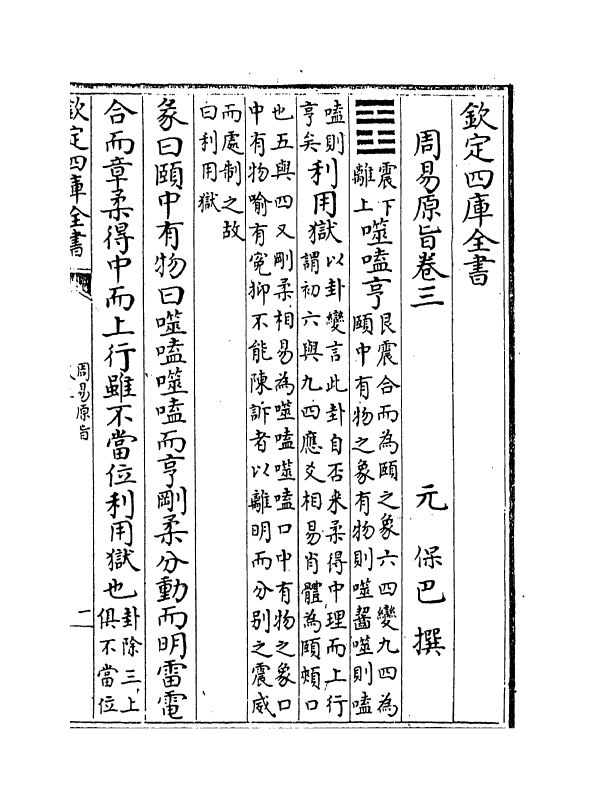 欽定四庫全書
周易原旨卷三
元 保巴 撰
震下
離上
噬嗑亨
艮震合而為頤之象六四變九四為
頤中有物之象有物則噬齧噬則嗑
嗑則
亨矣
利用獄
以卦變言此卦自否來柔得中理而上行
謂初六與九四應爻相易肖體為頤頰口
也五與四又剛柔相易為噬嗑噬嗑口中有物之象口
中有物喻有寃抑不能陳訴者以離明而分别之震威
而處制之故
曰利用獄
彖曰頤中有物曰噬嗑噬嗑而亨剛柔分動而明雷電
合而章柔得中而上行雖不當位利用獄也
卦除三上
俱不當位
欽定四庫全書
周易原旨